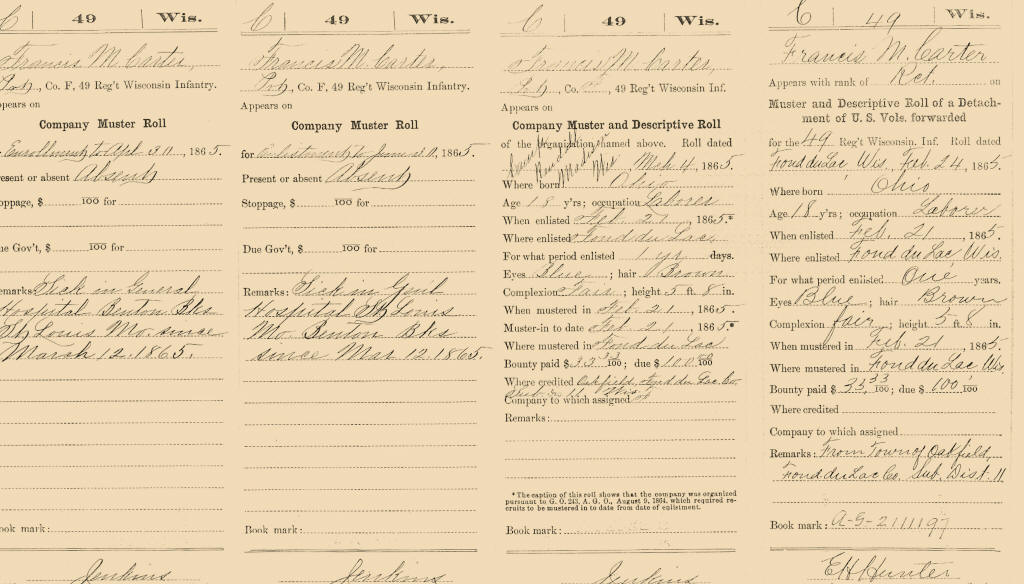 C | 49 | Wis.
Francis M. Carter,
Pvt, Co. F, 49 Reg't Wisconsin Infantry.
Appears on
Company Muster Roll
Enrollment to Apr 30, 1865.
resent or absent Absent
toppage, $ 100 for
ue Gov't, $ 100 for
emarks: Sick in General
Hospital Benton Bks
St Louis Mo. since
March 12. 1865.
ook mark:
Jenkins
C | 49 | Wis.
Francis M. Carter,
Pvt, Co. F, 49 Reg't Wisconsin Infantry.
Appears on
Company Muster Roll
for Enlistment to June 30, 1865.
Present or absent Absent
Stoppage, $ 100 for
Due Gov't, $ 100 for
Remarks: Sick in Genl
Hospital St Louis
Mo. Benton Bks
since Mar 12. 1865.
Book mark:
Jenkins
C | 49 | Wis.
Francis M. Carter,
Pvt, Co. , 49 Reg't Wisconsin Inf.
Appears on
Company Muster and Descriptive Roll
of the organization named above. Roll dated
Camp Randall Madison Wis Mch 4, 1865.
Where born Ohio
Age 18 y'rs; occupation Laborer
When enlisted Feb. 21, 1865.*
Where enlisted Fond du Lac,
For what period enlisted 1 yr days.
Eyes Blue; hair Brown
Complexion Fair; height 5 ft. 8 in.
When mustered in Feb. 21, 1865.
Muster-in to date Feb. 21, 1865.*
Where mustered in Fond du Lac
Bounty paid $ 33 33/100; due $ 100 00/100
Where credited Oakfield, Fond du Lac Co.
Sub. Dis 11 Wis.
Company to which assigned F
Remarks:
* The caption of this roll shows that the company was organized
pursuant to G. O. 243, A. G. O., August 9, 1864, which required re-
cruits to be mustered in to date from date of enlistment.
Book mark:
Jenkins
C | 49 | Wis.
Francis M. Carter
Appears with rank of Rct. on
Muster and Descriptive Roll of a Detach-
ment of U. S. Vols. forwarded
for the 49 Reg't Wisconsin. Inf. Roll dated
Fond du Lac Wis. Feb. 24, 1865.
Where born Ohio
Age 18 y'rs; occupation Laborer
When enlisted Feb. 21, 1865.
Where enlisted Fond du Lac, Wis.
For what period enlisted One years.
Eyes Blue; hair Brown
Complexion fair; height 5 ft. 8 in.
When mustered in Feb. 21, 1865.
Where mustered in Fond du Lac Wis.
Bounty paid $ 33 33/100; due $ 100 100
Where credited
Company to which assigned
Remarks: From Town of Oakfield,
Fond du Lac Co. Sub. Dist. 11
Book mark: A-G-2111197
E H Hunter